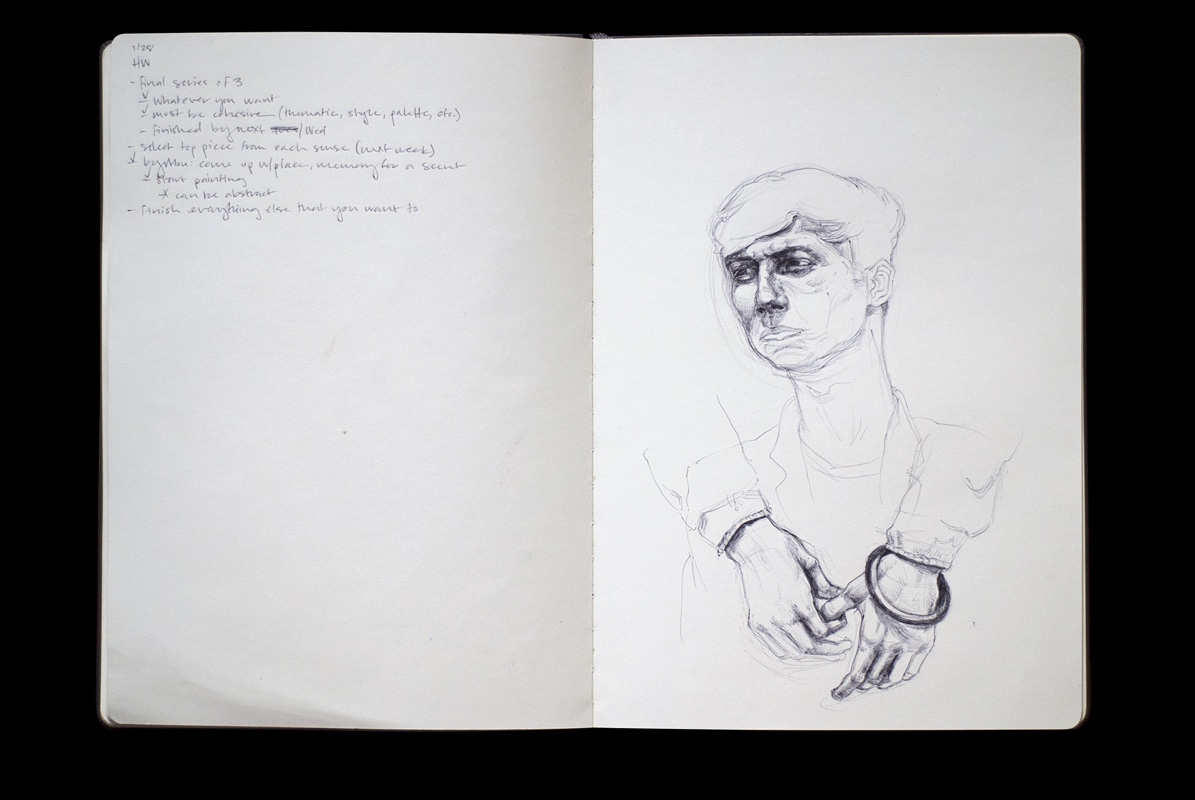 1/25
HW
- Final series of 3
- whatever you want
- must be cohesive (thematic, style, palette, etc.)
- Finished by next /Wed
- select top piece from each sense (next week)
- by Mon: come up w/place, memory for a scent
- start painting
* can be abstract
- Finish everything else that you want to